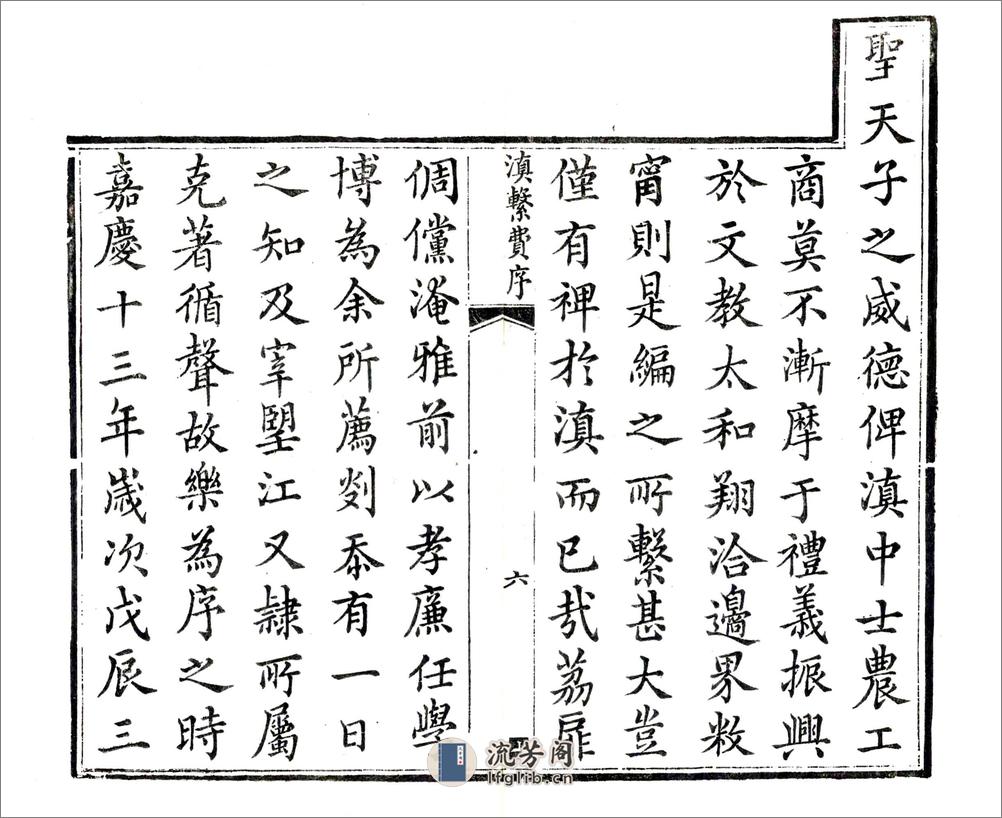 聖天子之威德俾滇中士農工
商莫不漸摩于禮義振興
於文教太和翔洽邊界敉
甯則是編之所繫甚大豈
僅有裨於滇而已哉荔扉
滇繫費序
六
倜儻淹雅前以孝廉任學
博為余所薦剡忝有一日
之知及宰朢江又隸所屬
克著循聲故樂為序之時
嘉慶十三年歲次戊辰三
流芳阁
lfglib.cn